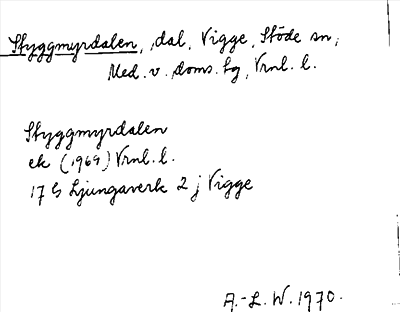 Styggmyrdalen, dal, Vigge, Stöde sn,
Med. v. doms. tg, Vrnl. l.
Styggmyrdalen
ek (1969) Vrnl. l.
17 G Ljungaverk 2 j Vigge
A.-L. W. 1970.